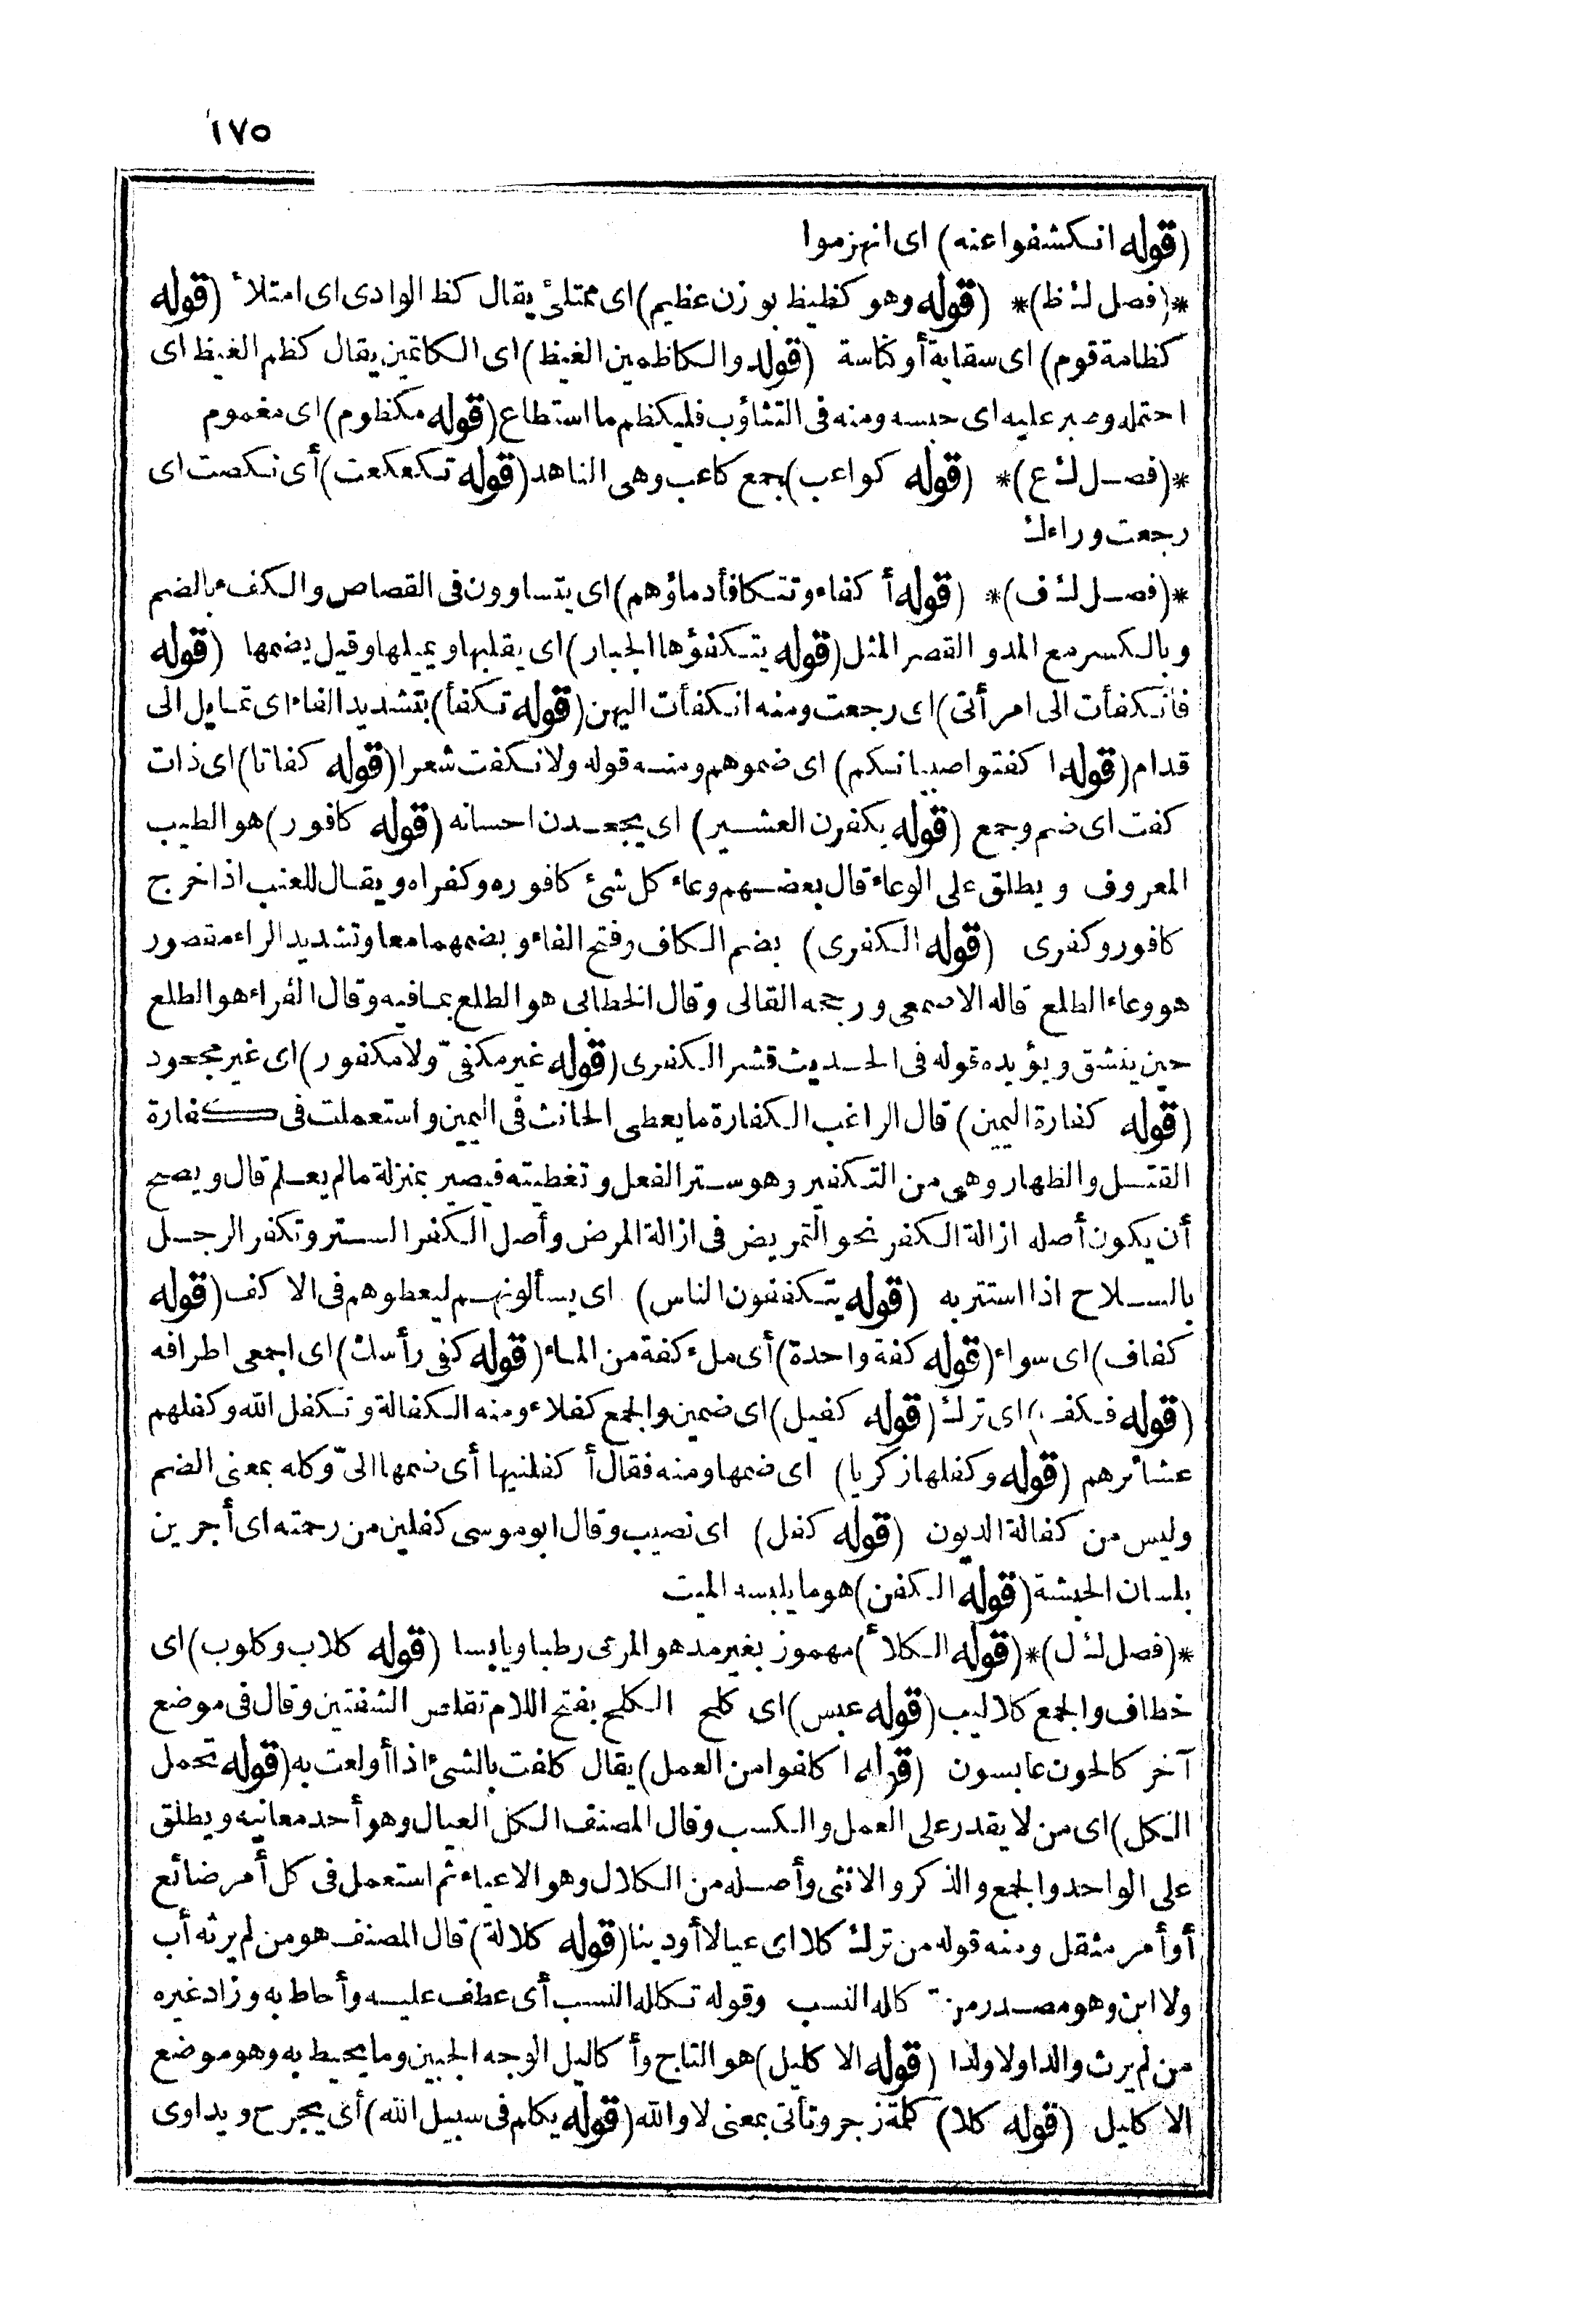 ١٧٥
(قوله انكشفوا عنه) اى انهزموا
*(فصل ك ظ)* (قوله وهو كظيظ بوزن عظيم) اى ممتلئ يقال كظ الوادى اى امتلأ (قوله
كظامة قوم) اى سقاية أو كناسة (قوله والكاظمين الغيظ) اى الكاتمين يقال كظم الغيظ اى
احتمله وصبر عليه اى حبسه ومنه فى التثاؤب فليكظم ما استطاع (قوله مكظوم) اى مغموم
*(فصل ك ع)* (قوله كواعب) جمع كاعب وهى الناهد (قوله تكعكعت) أى نكصت اى
رجعت وراءك
*(فصل ك ف)* (قوله أكفاء وتتكافأ دماؤهم) اى يتساوون فى القصاص والكفء بالضم
وبالكسر مع المد والقصر المثل (قوله يتكفؤها الجبار) اى يقلبها ويميلها وقيل يضمها (قوله
فانكفأت الى امرأتى) اى رجعت ومنه انكفأت اليهن (قوله تكفأ) بتشديد الفاء اى تمايل الى
قدام (قوله اكفتوا صبيانكم) اى ضموهم ومنه قوله ولا نكفت شعرا (قوله كفاتا) اى ذات
كفت اى ضم وجمع (قوله يكفرن العشير) اى يجحدن احسانه (قوله كافور) هو الطيب
المعروف ويطلق على الوعاء قال بعضهم وعاء كل شئ كافوره وكفراه ويقال للعنب اذا خرج
كافور وكفرى (قوله الكفرى) بضم الكاف وفتح الفاء وبضمهما معا وتشديد الراء مقصور
هو وعاء الطلع قاله الاصمعى ورجحه القالى وقال الخطابى هو الطلع بما فيه وقال الفراء هو الطلع
حين ينشق ويؤيده قوله فى الحديث قشر الكفرى (قوله غير مكفىّ ولا مكفور) اى غير مجحود
(قوله كفارة اليمين) قال الراغب الكفارة ما يعطى الحانث فى اليمين واستعملت فى كفارة
القتل والظهار وهى من التكفير وهو ستر الفعل وتغطيته فيصير بمنزلة ما لم يعلم قال ويصح
أن يكون أصله ازالة الكفر نحو التمريض فى ازالة المرض وأصل الكفر الستر وتكفر الرجل
بالسلاح اذا استتر به (قوله يتكففون الناس) اى يسألونهم ليعطوهم فى الاكف (قوله
كفاف) اى سواء (قوله كفة واحدة) أى ملء كفة من الماء (قوله كفى رأسك) اى اجمعى اطرافه
(قوله فكف) اى ترك (قوله كفيل) اى ضمين والجمع كفلاء ومنه الكفالة وتكفل الله وكفلهم
عشائرهم (قوله وكفلها زكريا) اى ضمها ومنه فقال أكفلنيها أى ضمها الىّ وكله بمعنى الضم
وليس من كفالة الديون (قوله كفل) اى نصيب وقال ابو موسى كفلين من رحمته اى أجرين
بلسان الحبشة (قوله الكفن) هو ما يلبسه الميت
*(فصل ك ل)* (قوله الكلأ) مهموز بغير مد هو المرعى رطبا ويابسا (قوله كلاب وكلوب) اى
خطاف والجمع كلاليب (قوله عبس) اى كلح الكلح بفتح اللام تقلص الشفتين وقال فى موضع
آخر كالحون عابسون (قوله اكلفوا من العمل) يقال كلفت بالشئ اذا أولعت به (قوله تحمل
الكل) اى من لا يقدر على العمل والكسب وقال المصنف الكل العيال وهو أحد معانيه ويطلق
على الواحد والجمع والذكر والانثى وأصله من الكلال وهو الاعياء ثم استعمل فى كل أمر ضائع
أو أمر مثقل ومنه قوله من ترك كلا اى عيالا أو دينا (قوله كلالة) قال المصنف هو من لم يرثه أب
ولا ابن وهو مصدر من تكلله النسب وقوله تكلله النسب أى عطف عليه وأحاط به وزاد غيره
من لم يرث والدا ولا ولدا (قوله الاكليل) هو التاج وأكاليل الوجه الجبين وما يحيط به وهو موضع
الاكليل (قوله كلا) كلمة زجر وتأتى بمعنى لا والله (قوله يكلم فى سبيل الله) أى يجرح ويداوى